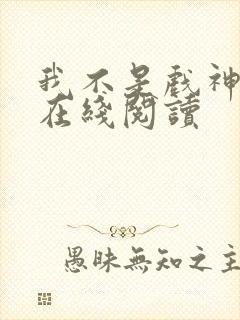 我不是戲神
在綫閱讀
愚昧無知之主